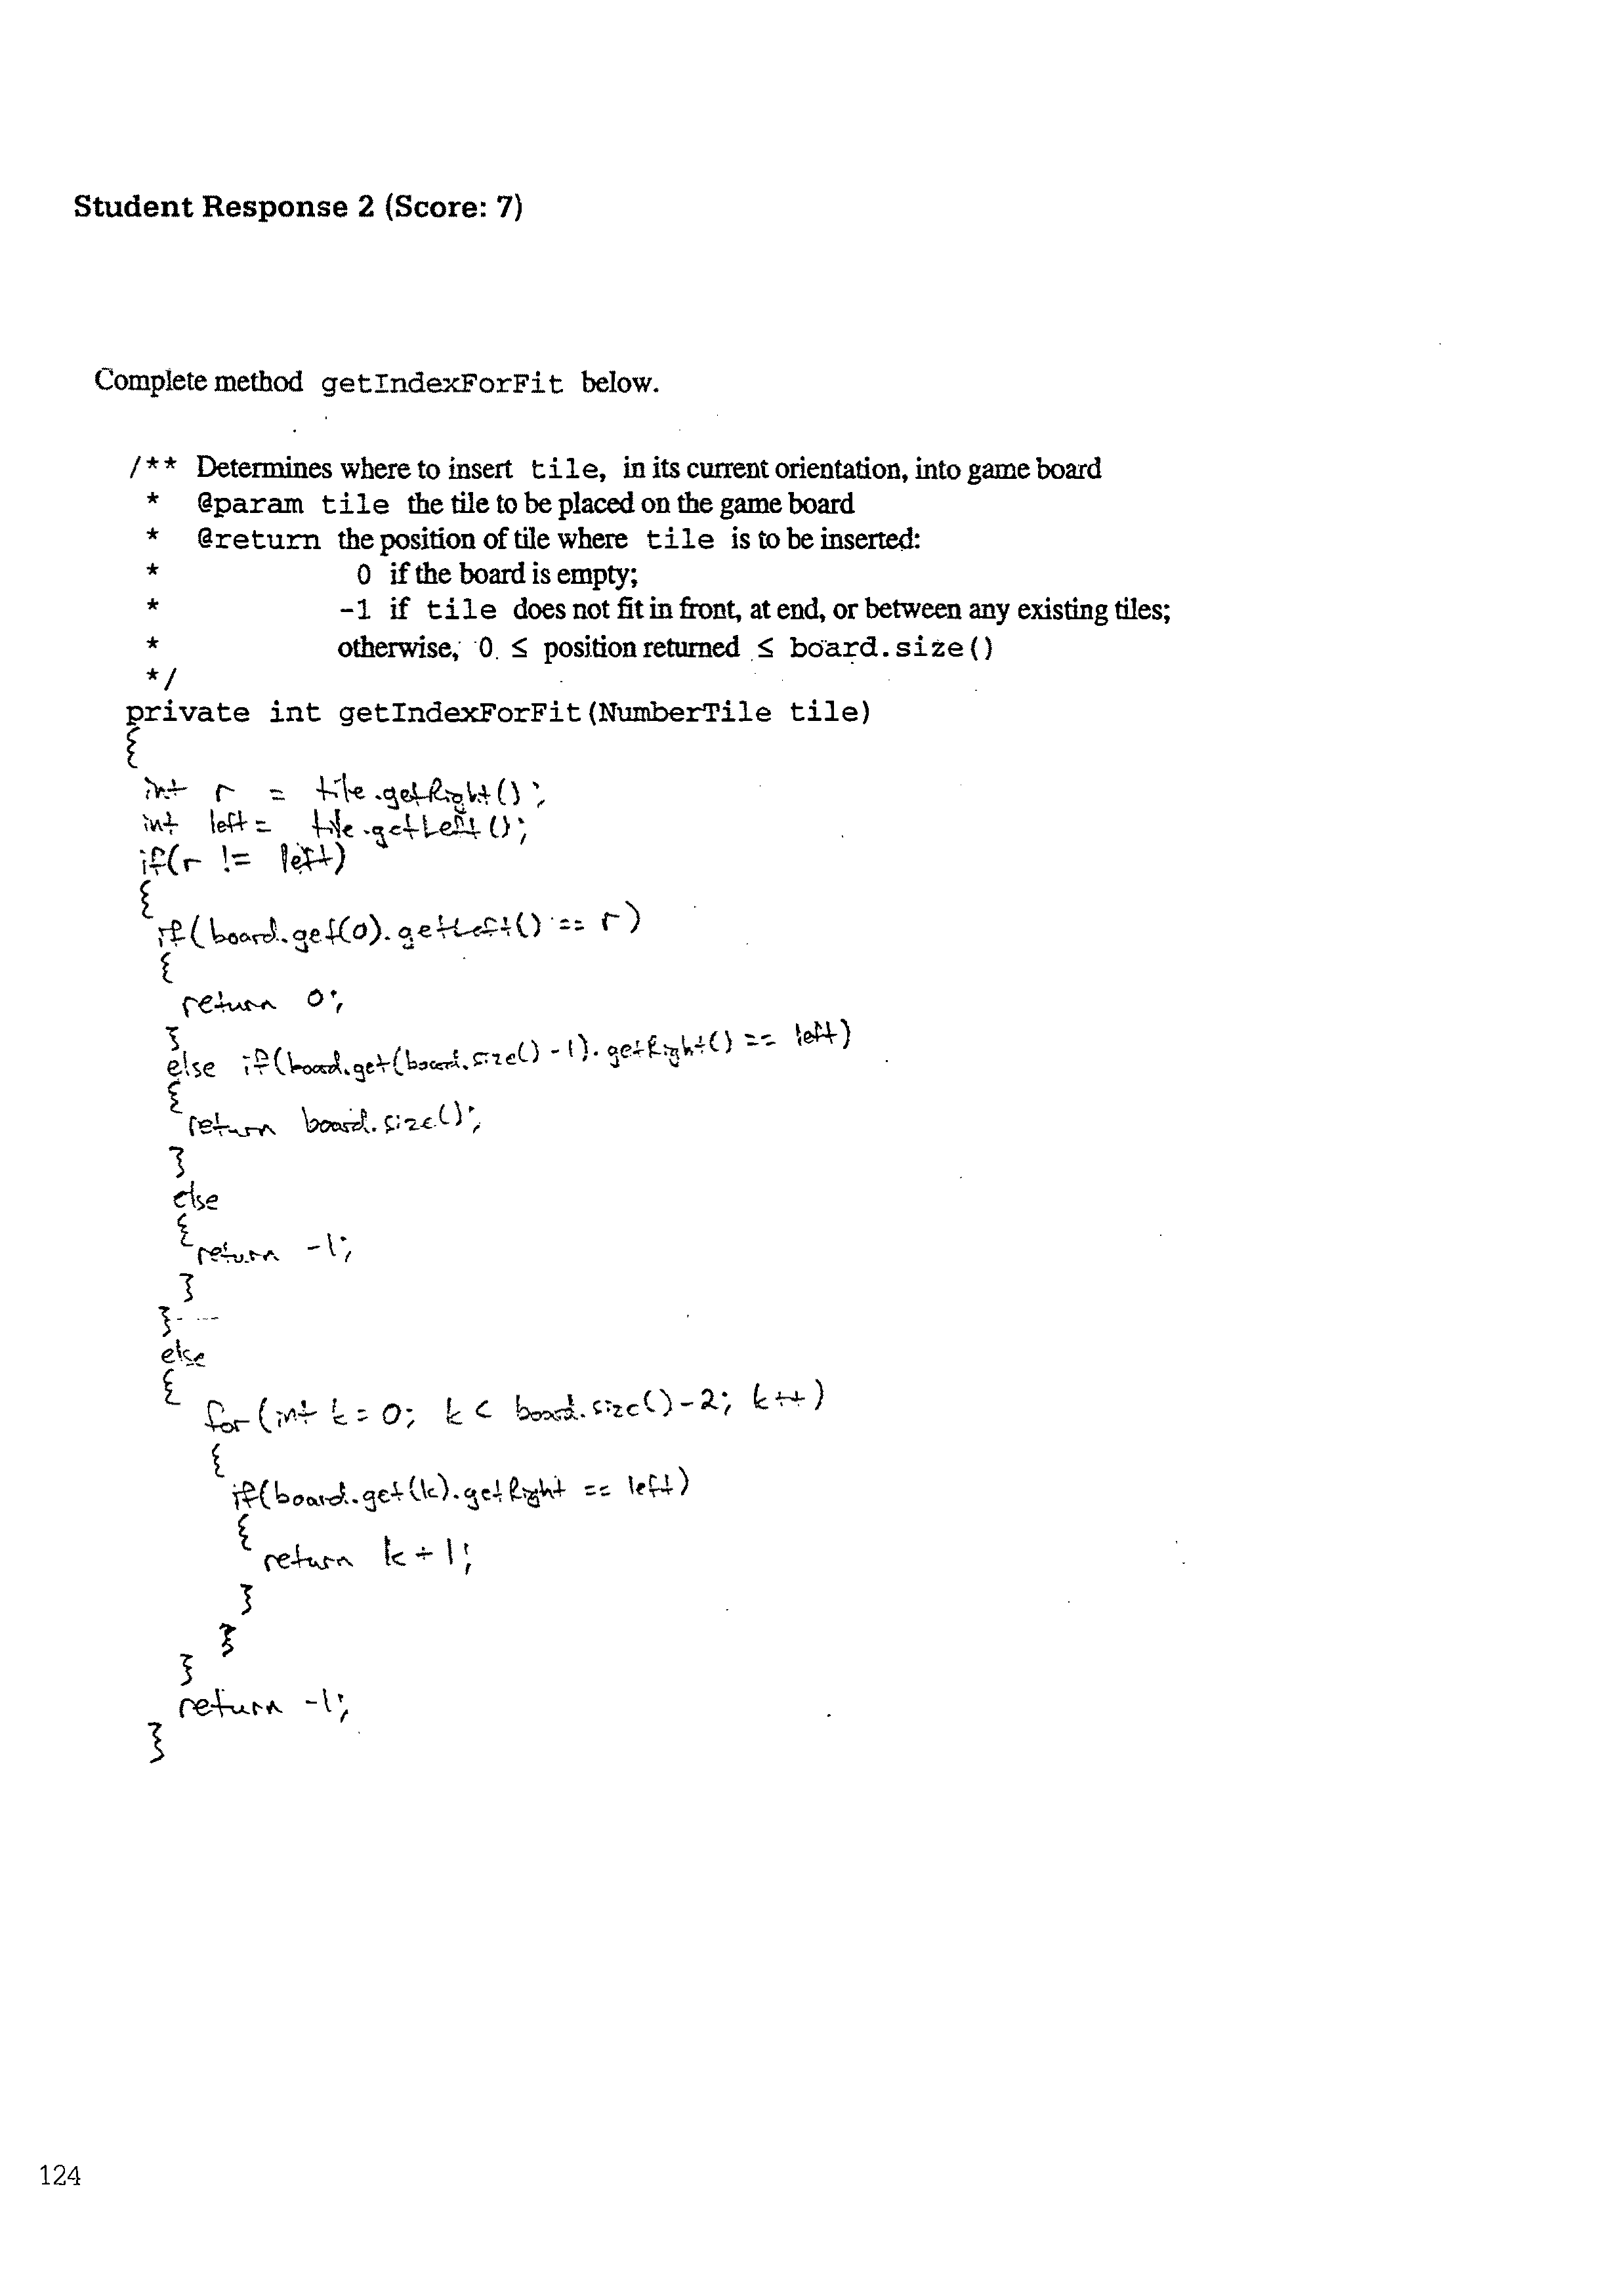 Student Response 2 (Score: 7)
Complete method getIndexForFit below.
/** Determines where to insert tile, in its current orientation, into game board
* @param tile the tile to be placed on the game board
* @return the position of tile where tile is to be inserted:
* 0 if the board is empty;
* -1 if tile does not fit in front, at end, or between any existing tiles;
* otherwise, 0 ≤ position returned ≤ board.size()
*/
private int getIndexForFit(NumberTile tile)
{
int r = tile.getRight();
int left = tile.getLeft();
if(r != left)
{
if(board.get(0).getLeft() == r)
{
return 0;
}
else if(board.get(board.size() -1).getRight() == left)
{
return board.size();
}
else
{
return -1;
}
}
else
{
for(int k = 0; k < board.size() -2; k++)
{
if(board.get(k).getRight == left)
{
return k + 1;
}
}
}
return -1;
}
124